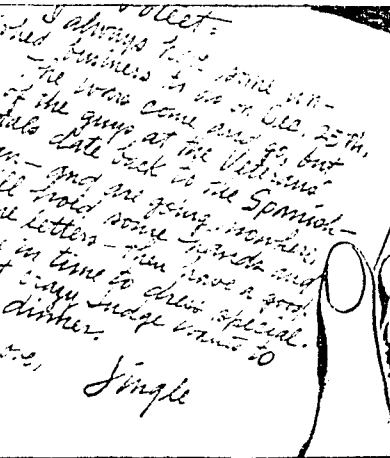 I always have some un-
business to do on Dec. 25th.
The wars come and go, but
of the guys at the Veterans'
date back to the Spanish-
and are going nowhere.
hold some hands and
letters - then have a good
in time to dress special.
crazy Judge wants to
dinner.
Jingle